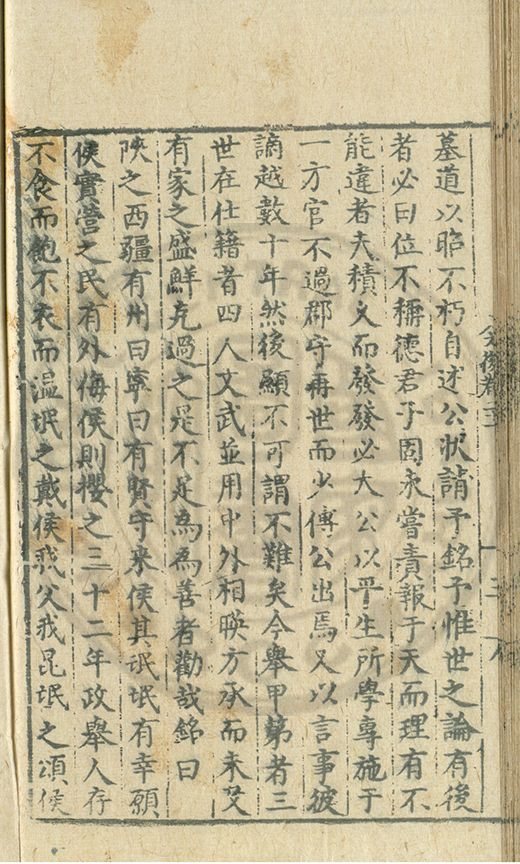 墓道以昭不朽自述公狀請予銘予惟世之論有後
者必曰位不稱德君子固未嘗責報于天而理有不
能違者夫積乆而發發必大公以平生所學專施于
一方官不過郡守再世而少傅公出焉又以言事彼
謫越數十年然後顯不可謂不難矣今舉甲第者三
世在仕籍者四人文武並用中外相暎方承而未艾
有家之盛鮮克過之是不足為為善者勸哉銘曰
陜之西疆有州曰寧曰有賢守来侯其氓氓有幸願
侯實營之民有外侮侯則攖之三十二年政舉人存
不食而飽不衣而温氓之戴侯我父我昆氓之頌侯